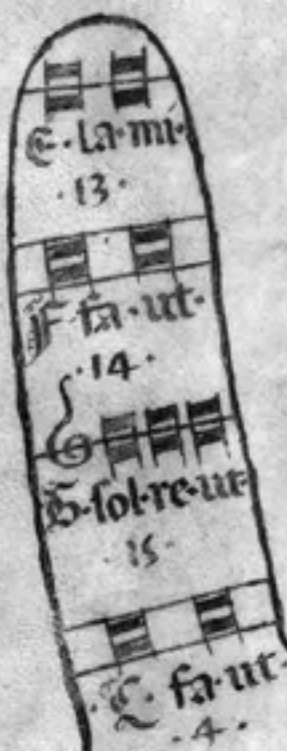 E·la·mi·
·13·
F fa·ut·
·14·
G·sol·re·ut·
·15·
·C·fa·ut·
·4·